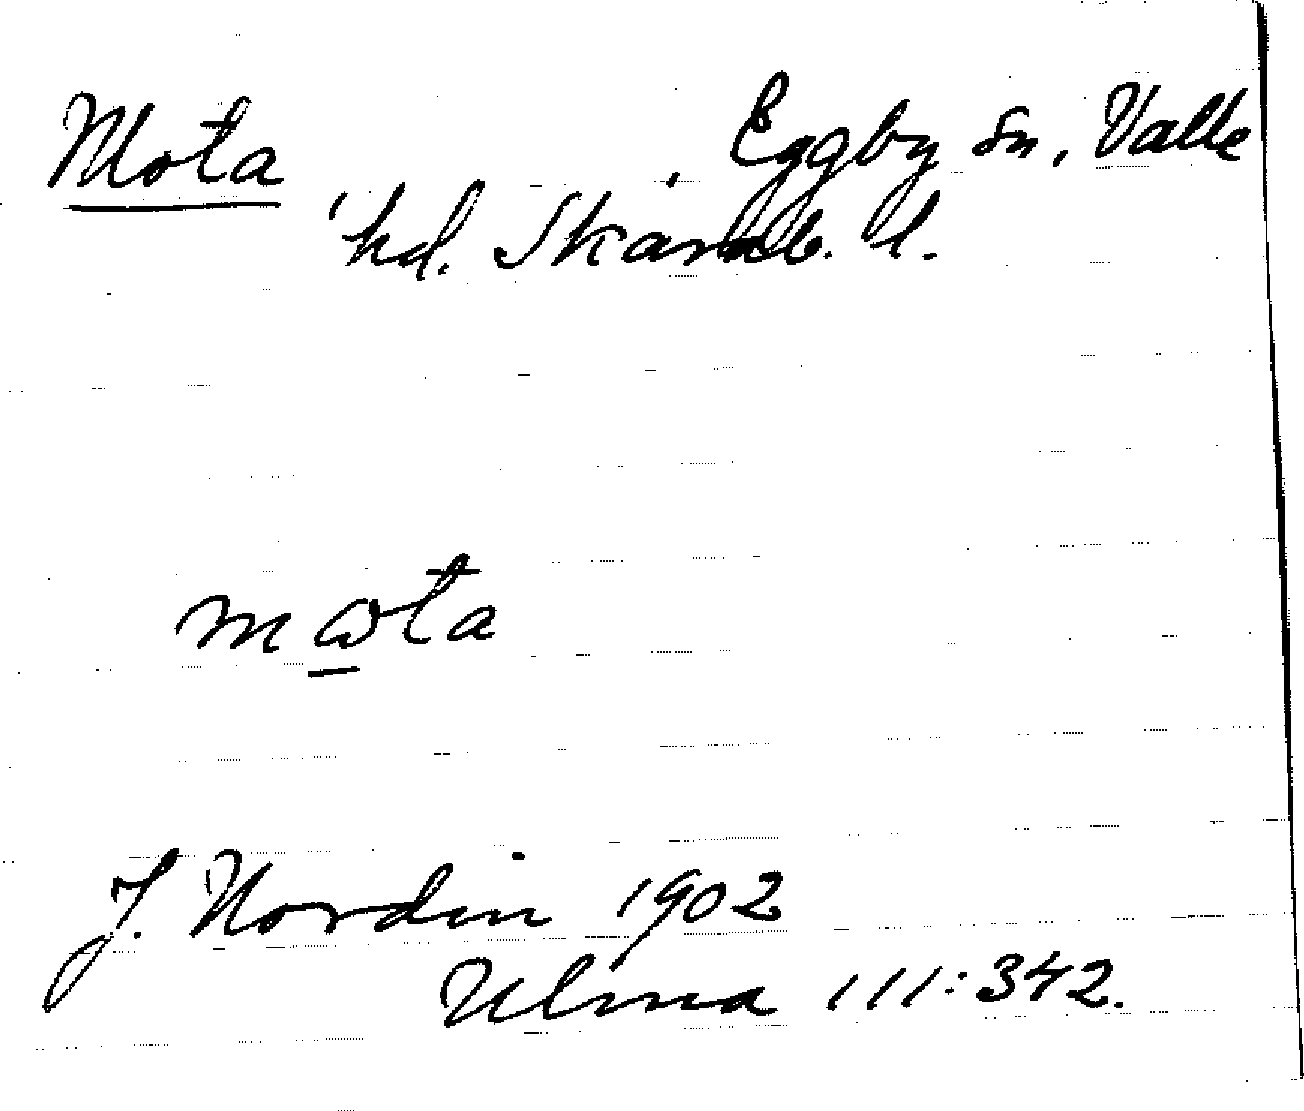 Mota Eggby sn, Valle
hd. Skarab. l.
mɷta
J. Nordin 1902
Ulma 111:342.